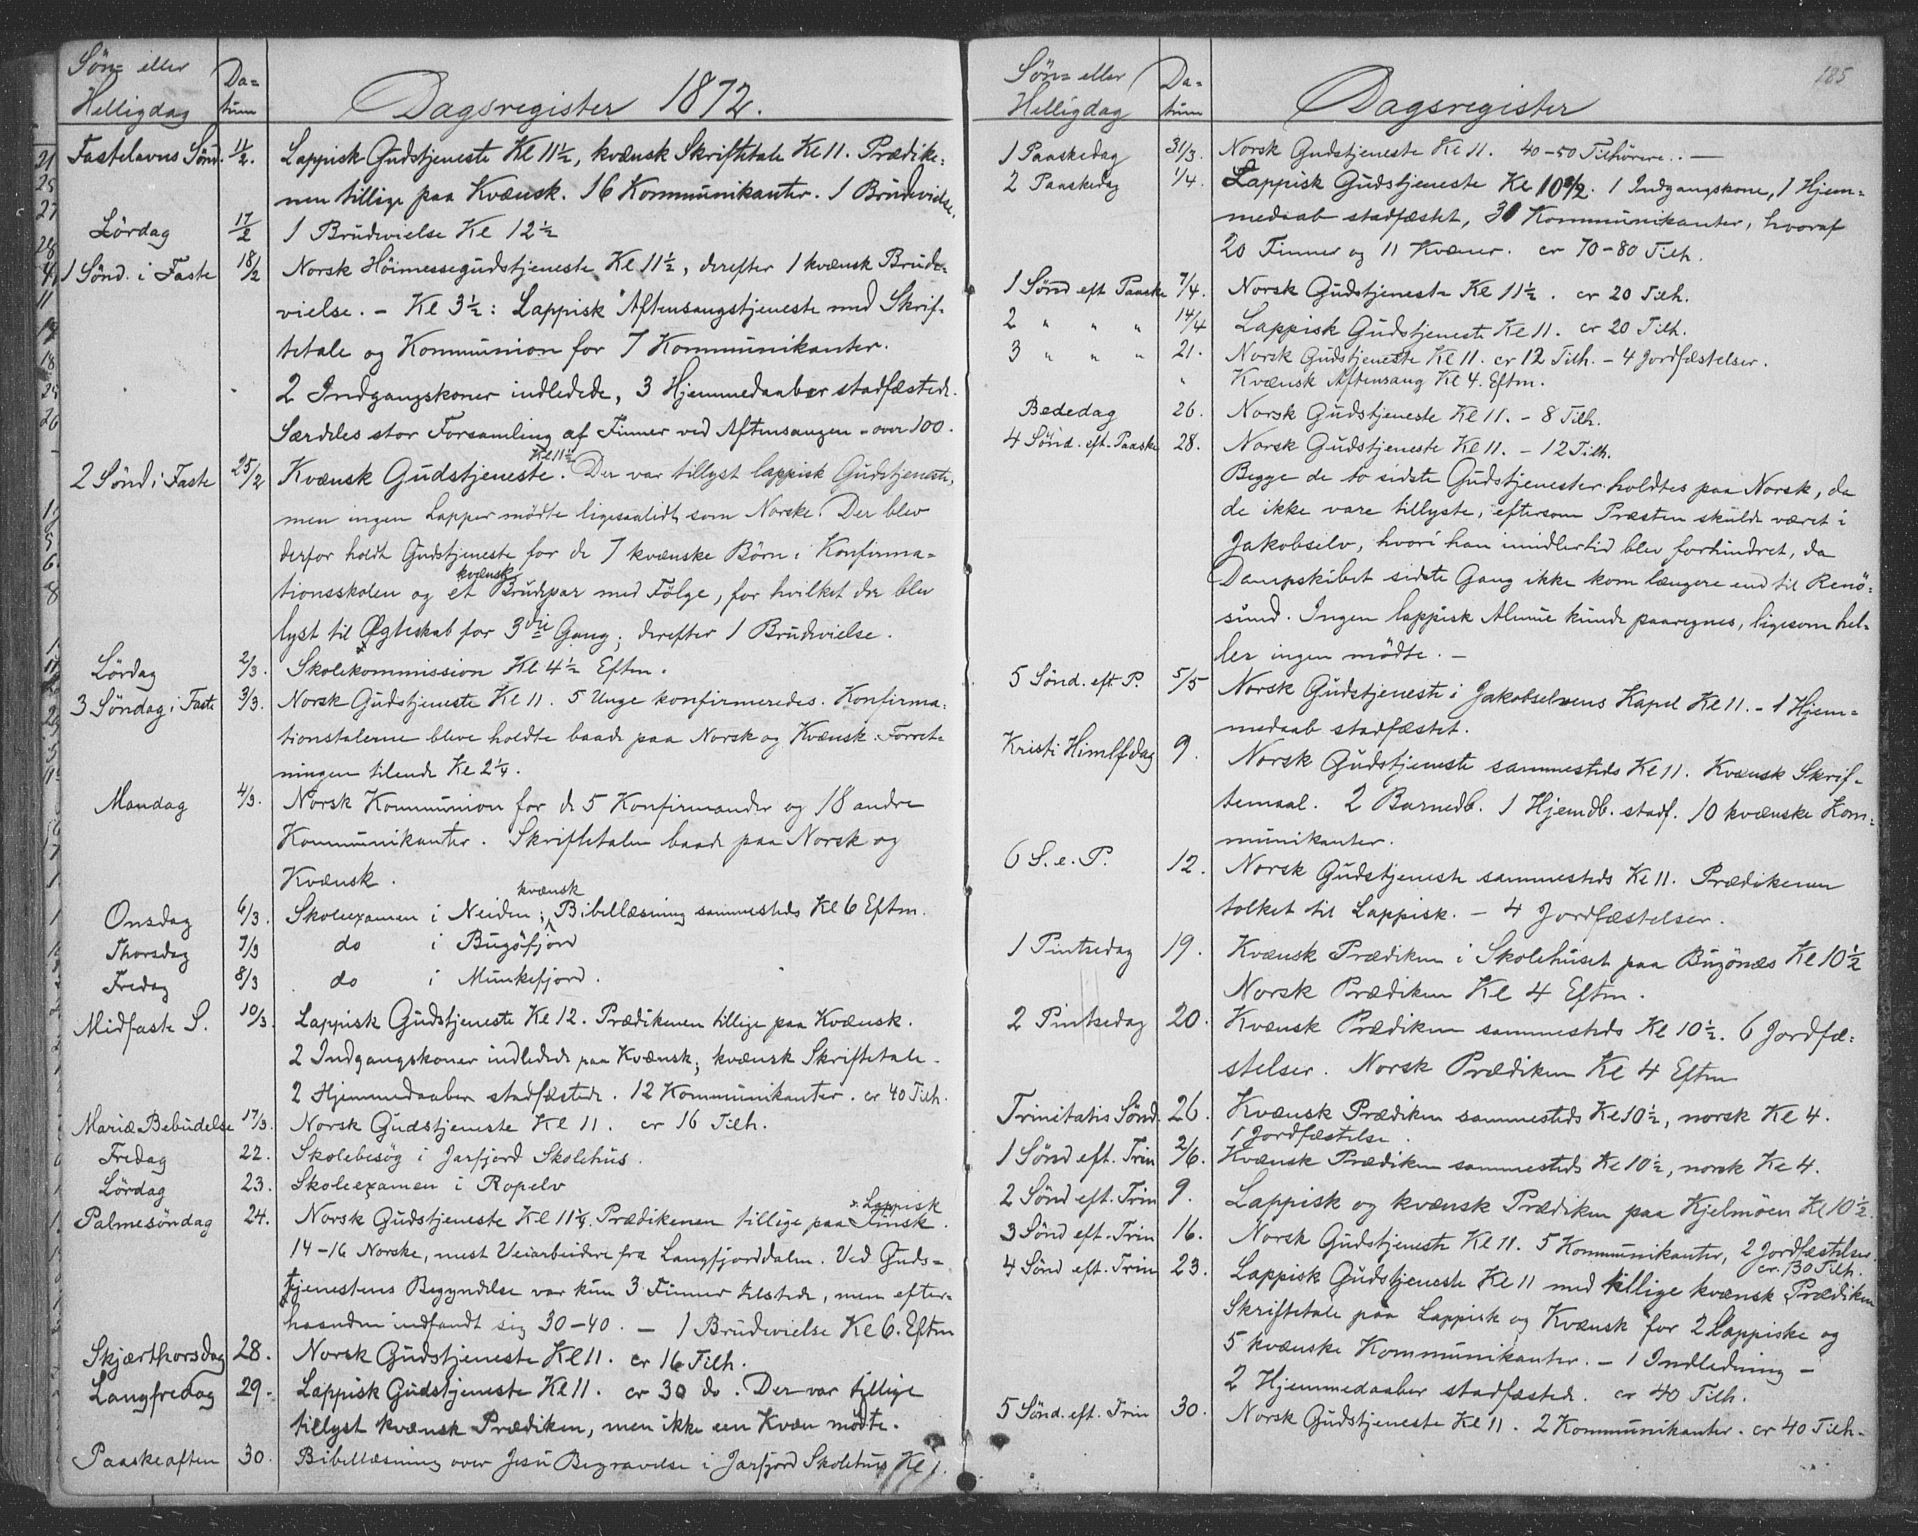 Søn- eller Helligdag | Da-tum | Dagsregister 1872.
Fastelavns Sønd. 11/2. Lappisk Gudstjeneste Kl 11½, kvænsk Skriftetale Kl 11. Prædike-
nen tillige paa Kvænsk. 16 Kommunikanter. 1 Brudevielse.
Lördag 17/2 1 Brudevielse Kl 12½
1 Sönd. i Faste 18/2 Norsk Höimessegudstjeneste Kl 11½, derefter 1 kvænsk Brude-
vielse. - Kl 3½: Lappisk Aftensangstjeneste med Skrif-
tetale og Kommunion for 7 Kommunikanter.
2 Indgangskoner indledede, 3 Hjemmedaaber stadfæstede.
Særdeles stor Forsamling af Finner ved Aftensangen - over 100.
2 Sönd i Faste 25/2 Kvænsk Gudstjeneste Kl 11½. Der var tillyst lappisk Gudstjeneste,
men ingen Lapper mödte ligesaalidt som Norske. Der blev
derfor holdt Gudstjeneste for de 7 kvænske Börn i Konfirma-
tionsskolen og et kvænsk Brudepar med Fölge, for hvilket der blev
lyst til Ægteskab for 3die Gang; derefter 1 Brudevielse.
Lördag 2/3. Skolekommission Kl 4½ Eftm.
3 Söndag i Faste 3/3. Norsk Gudstjeneste Kl 11. 5 Unge konfirmeredes. Konfirma-
tionstalerne bleve holdte baade paa Norsk og Kvænsk. Forret-
ningen tilende Kl 2¼.
Mandag 4/3. Norsk Kommunion for de 5 Konfirmander og 18 andre
Kommunikanter. Skriftetalen baade paa Norsk og
Kvænsk.
Onsdag 6/3. Skoleexamen i Neiden; kvænsk Bibellæsning sammesteds Kl 6 Eftm.
Thorsdag 7/3 do i Bugöfjord
Fredag 8/3 do i Munkefjord.
Midfaste S. 10/3. Lappisk Gudstjeneste Kl 12. Prædikenen tillige paa Kvænsk.
2 Indgangskoner indledede paa Kvænsk; kvænsk Skriftetale.
2 Hjemmedaaber stadfæstede. 12 Kommunikanter. cr 40 Tilh.
Mariæ Bebudelse 17/3. Norsk Gudstjeneste Kl 11. cr 16 Tilh.
Fredag 22. Skolebesög i Jarfjord Skolehus.
Lördag 23. Skoleexamen i Ropelv
Palmesöndag 24. Norsk Gudstjeneste Kl 11¼. Prædikenen tillige paa Finsk. Lappisk
14-16 Norske, mest Veiarbeidere fra Langfjorddalen. Ved Guds-
tjenestens Begyndelse var kun 3 Finner tilstede, men efter-
haanden indfandt sig 30-40. - 1 Brudevielse Kl 6. Eftm
Skjærthorsdag 28. Norsk Gudstjeneste Kl 11. cr 16 Tilh.
Langfredag 29. Lappisk Gudstjeneste Kl 11. cr 30 do. Der var tillige
tillyst kvænsk Prædiken, men ikke een Kvæn mödte.
Paaskeaften 30. Bibellæsning over Jesu Begravelse i Jarfjord Skolehus Kl 1.
185
Søn- eller Helligdag | Da-tum | Dagsregister
1 Paaskedag 31/3. Norsk Gudstjeneste Kl 11. 40-50 Tilhörere. -
2 Paaskedag 1/4. Lappisk Gudstjeneste Kl 10½. 1 Indgangskone, 1 Hjem-
medaab stadfæstet, 31 Kommunikanter, hvoraf
20 Finner og 11 Kvæner. cr 70-80 Tilh.
1 Sönd eft Paaske 7/4. Norsk Gudstjeneste Kl 11½. cr 20 Tilh.
2 " " " 14/4 Lappisk Gudstjeneste Kl 11. cr 20 Tilh.
3 " " " 21. Norsk Gudstjeneste Kl 11. cr 12 Tilh. - 4 Jordfæstelser.
" Kvænsk Aftensang Kl 4. Eftm.
Bededag 26. Norsk Gudstjeneste Kl 11. - 8 Tilh.
4 Sönd. eft. Paaske 28. Norsk Gudstjeneste Kl 11. - 12 Tilh.
Begge de to sidste Gudstjenester holdtes paa Norsk, da
de ikke vare tillyste, eftersom Præsten skulde været i
Jakobselv, hvori han imidlertid blev forhindret, da
Dampskibet sidste Gang ikke kom længere end til Renö-
sund. Ingen lappisk Almue kunde paaregnes, ligesom hel-
ler ingen mödte. -
5 Sönd. eft. P. 5/5 Norsk Gudstjeneste i Jakobselvens Kapel Kl 11. - 1 Hjem-
medaab stadfæstet.
Kristi Himlfdag 9. Norsk Gudstjeneste sammesteds Kl 11. Kvænsk Skrif-
temaal. 2 Barnedb. 1 Hjemdb. stadf. 10 kvænske Kom-
munikanter.
6 S. e. P. 12. Norsk Gudstjeneste sammesteds Kl 11. Prædikenen
tolket til Lappisk. - 4 Jordfæstelser.
1 Pintsedag 19. Kvænsk Prædiken i Skolehuset paa Bugönæs Kl 10½
Norsk Prædiken Kl 4 Eftm.
2 Pintsedag 20. Kvænsk Prædiken sammesteds Kl 10½. 6 Jordfæ-
stelser. Norsk Prædiken Kl 4 Eftm
Trinitatis Sönd. 26. Kvænsk Prædiken sammesteds Kl 10½, norsk Kl 4.
1 Jordfæstelse.
1 Sönd eft. Trin 2/6. Kvænsk Prædiken sammesteds Kl 10½, norsk Kl 4.
2 Sönd eft. Trin 9. Lappisk og kvænsk Prædiken paa Kjelmöen Kl 10½.
3 Sönd eft. Trin 16. Norsk Gudstjeneste Kl 11. 5 Kommunikanter, 2 Jordfæstelser.
cr. 30 Tilh.
4 Sönd eft. Trin 23. Lappisk Gudstjeneste Kl 11 med tillige kvænsk Prædiken
Skriftetale paa Lappisk og Kvænsk for 2 lappiske og
5 kvænske Kommunikanter. - 1 Indledning -
2 Hjemmedaaber stadfæstede. cr 40 Tilh.
5 Sönd. eft. Trin 30. Norsk Gudstjeneste Kl 11. 2 Kommunikanter. cr 40 Tilh.